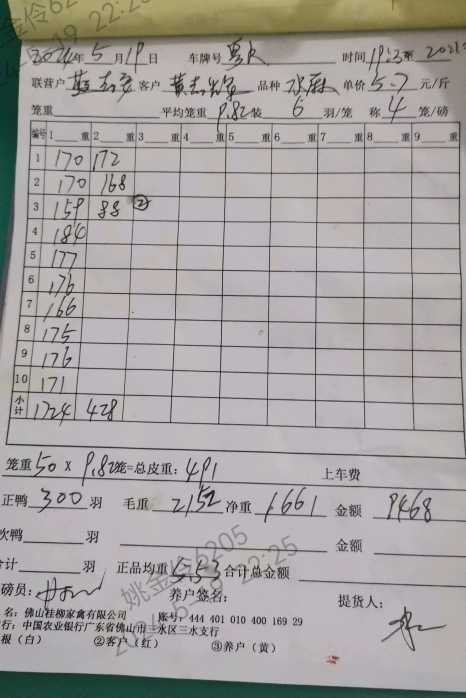 2024年5月19日 车牌号 时间19:3至2021
联营户 客户 黄 品种 水麻 单价5.7元/斤
笼重 平均笼重9.82装6羽/笼 称4笼/磅
编号 1 重 2 重 3 重 4 重 5 重 6 重 7 重 8 重 9 重
1 170 172
2 170 168
3 159 88 ②
4 184
5 177
6 176
7 166
8 175
9 176
10 171
小计 1724 428
笼重50×9.82笼=总皮重:491 上车费
正鸭300羽 毛重2152净重1661 金额9468
次鸭 羽 金额
合计 羽 正品均重5.53合计总金额
磅员: 养户签名: 提货人:
名:佛山桂柳家禽有限公司 账号:444 401 010 400 169 29
行:中国农业银行广东省佛山市三水区三水支行
根(白) ②客户(红) ③养户(黄)
姚金伶6205
22:25